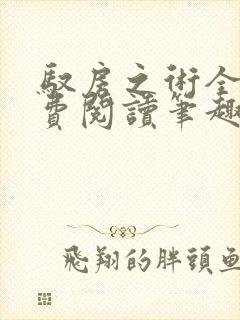 馭房之術全
費閱讀筆趣
飛翔的胖頭魚